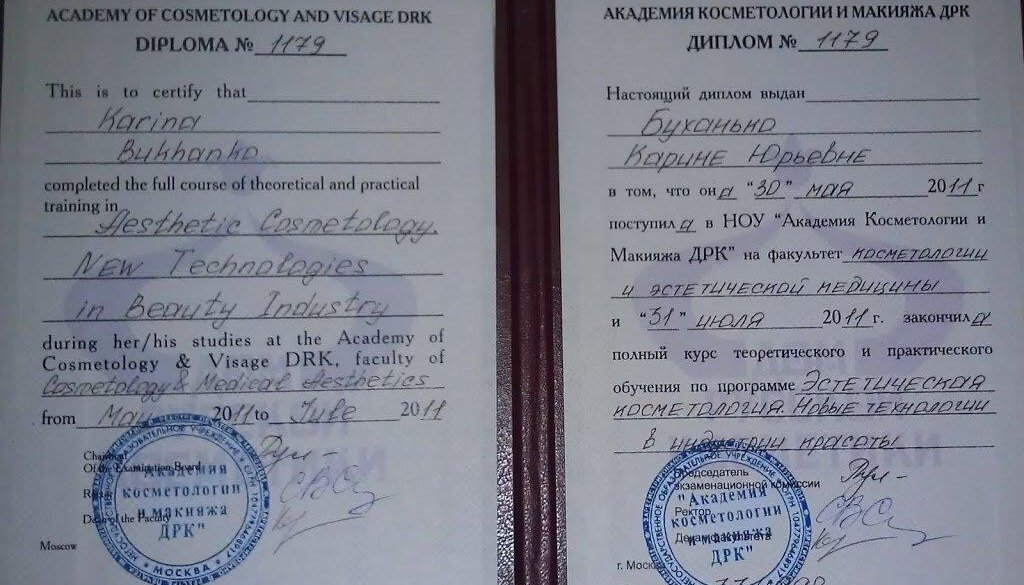 ACADEMY OF COSMETOLOGY AND VISAGE DRK
DIPLOMA № 1179
This is to certify that
Karina
Bukhanko
completed the full course of theoretical and practical
training in Aesthetic Cosmetology.
New Technologies
in Beauty Industry
during her/his studies at the Academy of
Cosmetology & Visage DRK, faculty of
Cosmetology & Medical Aesthetics
from May 2011 to Jule 2011
Of the Examination Board
Dean of the Faculty
Moscow
"Академия
косметологии
и макияжа
ДРК"
МОСКВА
АКАДЕМИЯ КОСМЕТОЛОГИИ И МАКИЯЖА ДРК
ДИПЛОМ № 1179
Настоящий диплом выдан
Буханько
Карине Юрьевне
в том, что она "30" мая 2011 г
поступила в НОУ "Академия Косметологии и
Макияжа ДРК" на факультет косметологии
и эстетической медицины
и "31" июля 2011 г. закончила
полный курс теоретического и практического
обучения по программе Эстетическая
косметология. Новые технологии
в индустрии красоты
Председатель
экзаменационной комиссии
Ректор
Декан факультета
г. Москва
"Академия
косметологии
и макияжа
ДРК"